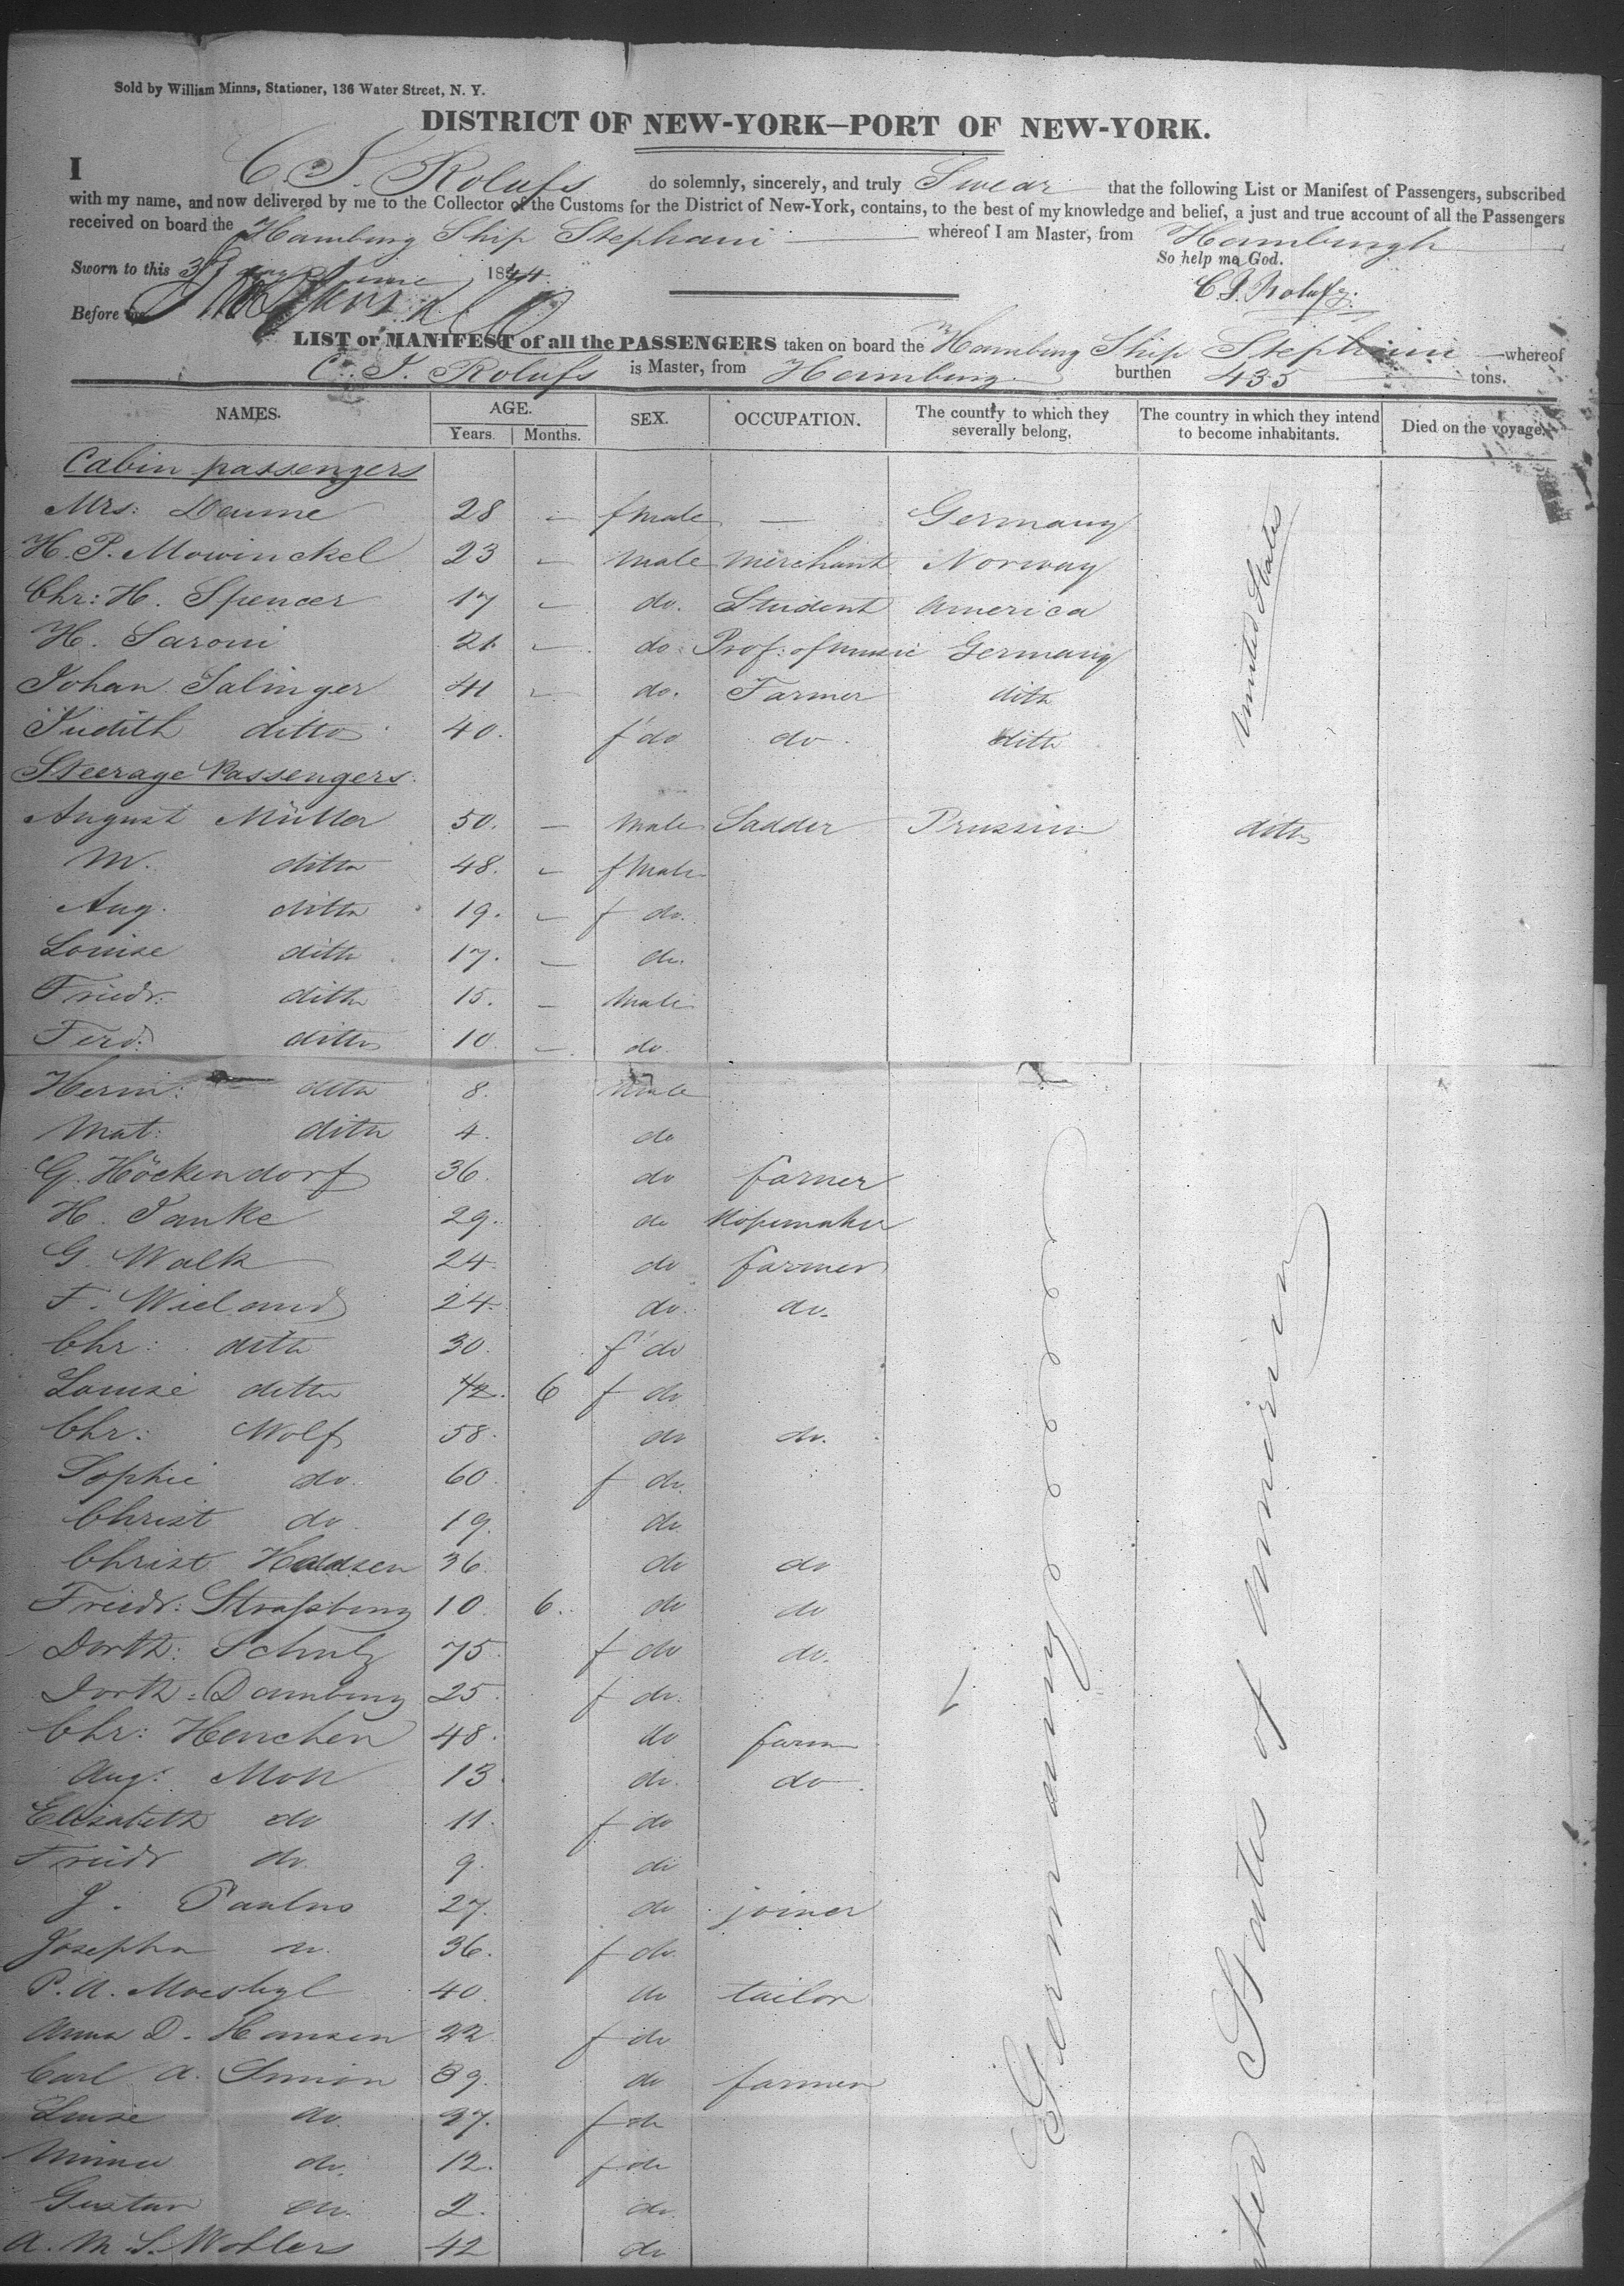 Sold by William Minns, Stationer, 136 Water Street, N. Y.
DISTRICT OF NEW-YORK—PORT OF NEW-YORK.
I C. J. Rolufs do solemnly, sincerely, and truly Swear that the following List or Manifest of Passengers, subscribed
with my name, and now delivered by me to the Collector of the Customs for the District of New-York, contains, to the best of my knowledge and belief, a just and true account of all the Passengers
received on board the Hamburg Ship Stephani whereof I am Master, from Hamburgh
So help me God.
Sworn to this 3 June 1844
C. J. Rolufs
Before me
LIST or MANIFEST of all the PASSENGERS taken on board the Hamburg Ship Stephani whereof
C. J. Rolufs is Master, from Hamburg burthen 435 tons.
NAMES. AGE. Years. Months. SEX. OCCUPATION. The country to which they severally belong, The country in which they intend to become inhabitants. Died on the voyage.
Cabin passengers
Mrs: Daume 28 — fmale — Germany
H. P. Mowinckel 23 — male merchant Norway
Chr: H. Spencer 17 — do. Student America
H. Saroni 21 — do. Prof: of music Germany
Johan Salinger 41 — do. Farmer ditto
Judith ditto 40. f do do ditto
United States
Steerage Passengers.
August Müller 50. — male Sadder Prussia ditto
M. ditto 48. — fmale
Aug. ditto 19. — f do.
Louise ditto 17. — do.
Friedr. ditto 15. — male
Ferd: ditto 10 — do
Herm: ditto 8. male
Mat: ditto 4. do
G. Höckendorf 36. do farmer
H. Janke 29. do
G. Walk 24. do farmer
F. Wieland 24. do. do.
Chr: ditto 30. f do
Louise ditto 6 f do
Chr: Wolf 58. do do.
Sophie do. 60. f do.
Christ do 19. do
Christ 36 do do
Friedr: Strassburg 10. 6. do do
Dorth: Schulz 75 f do do.
Dorth: Damburg 25. f do.
Chr: Henchen 48. do farm
Aug: Moll 13 do. do
Elisabeth do 11. f do
Friedr do 9. do
J. Paulus 27. do joiner
Josepha do 36. f do
P. A. 40. do tailor
Anna D. Hansen 22 f do
Carl A. Simon 39. do farmer
Louise do 37. f do
Minna do. 12. f do
Gustav do. 2. do.
A. M. S. Wohlers 42 do
Germany
States of America